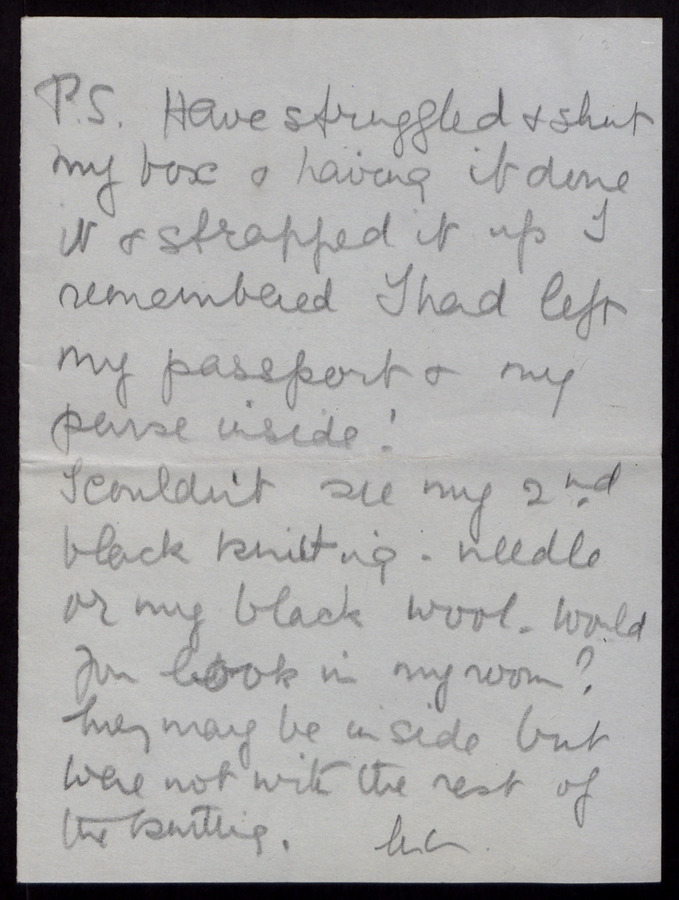 P.S. Have struggled & shut
my box & having it done
it & strapped it up I
remembered I had left
my passport & my
purse inside!
I couldn't see my 2nd
black knitting-needle
or my black wool. Would
you look in my room?
They may be inside but
were not with the rest of
the knitting.